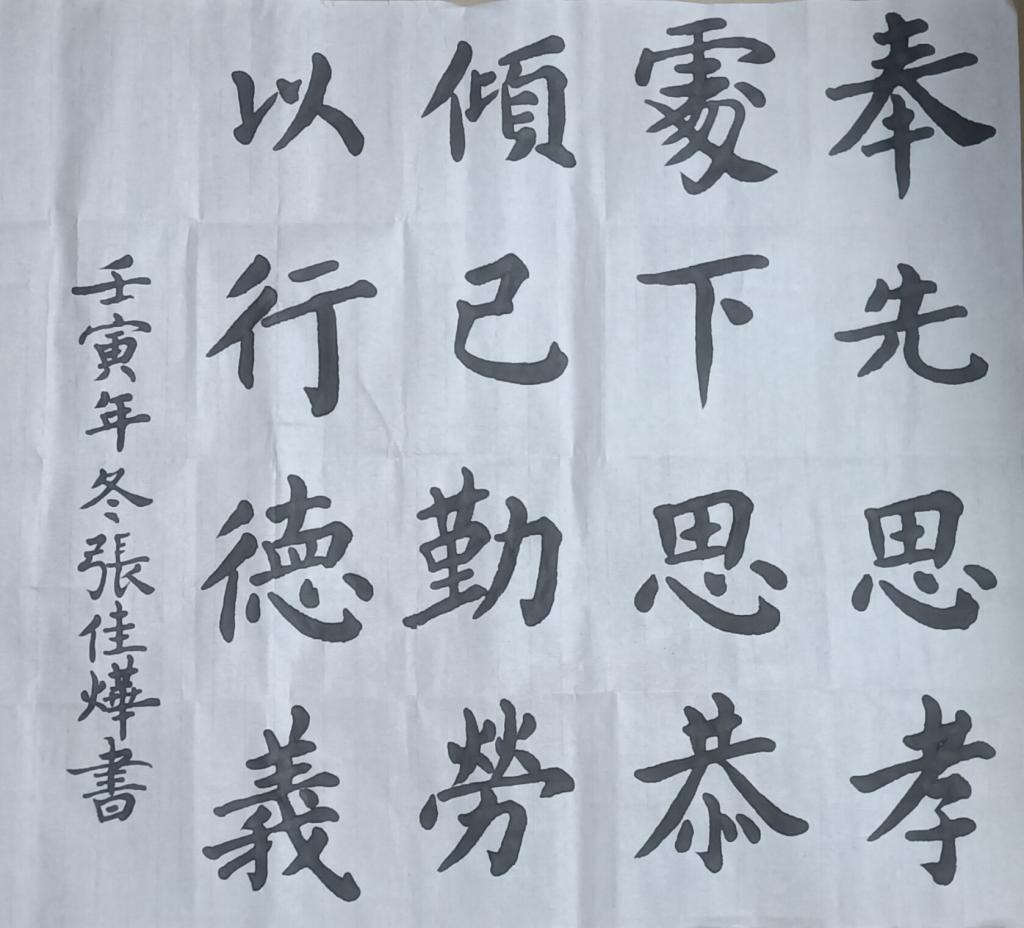 奉先思孝
處下思恭
傾己勤勞
以行德義
壬寅年冬張佳燁書